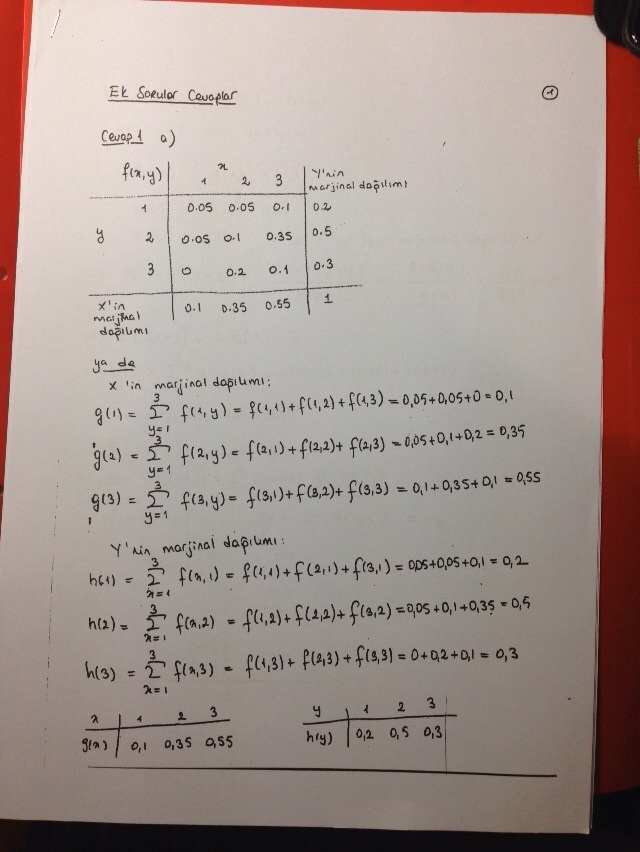 Ek Sorular Cevaplar
1
Cevap 1 a)
x
f(x,y) 1 2 3 Y'nin marjinal dağılımı
1 0.05 0.05 0.1 0.2
y 2 0.05 0.1 0.35 0.5
3 0 0.2 0.1 0.3
X'in marjinal dağılımı 0.1 0.35 0.55 1
ya da
X'in marjinal dağılımı:
g(1) = ∑_{y=1}^{3} f(1,y) = f(1,1)+f(1,2)+f(1,3) = 0,05+0,05+0 = 0,1
g(2) = ∑_{y=1}^{3} f(2,y) = f(2,1)+f(2,2)+f(2,3) = 0,05+0,1+0,2 = 0,35
g(3) = ∑_{y=1}^{3} f(3,y) = f(3,1)+f(3,2)+f(3,3) = 0,1+0,35+0,1 = 0,55
Y'nin marjinal dağılımı:
h(1) = ∑_{x=1}^{3} f(x,1) = f(1,1)+f(2,1)+f(3,1) = 0,05+0,05+0,1 = 0,2
h(2) = ∑_{x=1}^{3} f(x,2) = f(1,2)+f(2,2)+f(3,2) = 0,05+0,1+0,35 = 0,5
h(3) = ∑_{x=1}^{3} f(x,3) = f(1,3)+f(2,3)+f(3,3) = 0+0,2+0,1 = 0,3
x 1 2 3 y 1 2 3
g(x) 0,1 0,35 0,55 h(y) 0,2 0,5 0,3